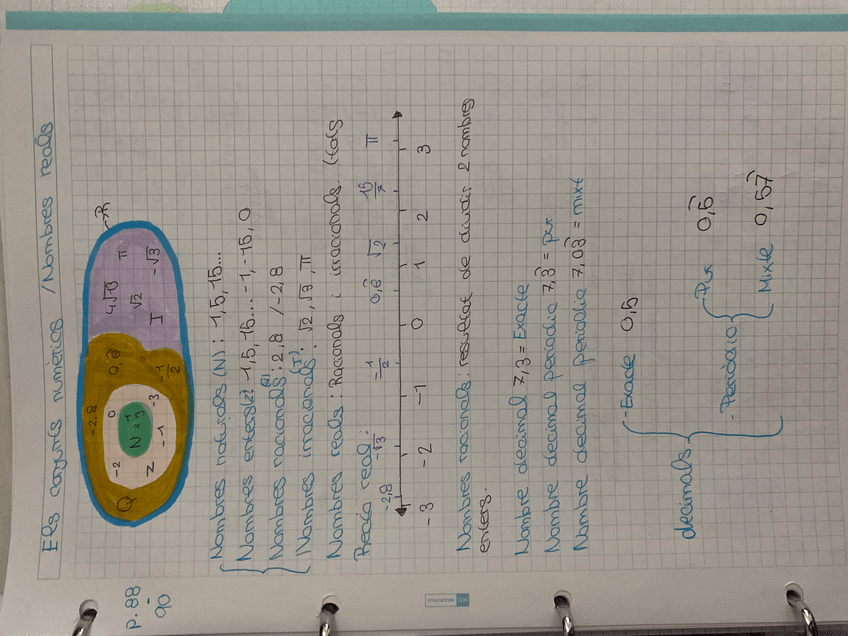 Els conjunts numèrics / Nombres reals
p. 88
-
90
R
Q
-2,8
0,6̂
-1/2
Z
-2
0
-1
-3
N
1
2
3
4√13
π
√2
-√3
I
Nombres naturals (N) : 1,5,15...
Nombres enters (Z): 1,5,15...-1,-15,0
Nombres racionals (Q): 2,8 / -2,8
Nombres irracionals (I): √2, √3, π
Nombres reals: Racionals i irracionals. (tots
Recta real:
-2,8 -√3 -1/2 0,6̂ √2 15/7 π
-3 -2 -1 0 1 2 3
Nombres racionals: resultat de dividir 2 nombres
enters.
Nombre decimal 7,3 = Exacte
Nombre decimal periòdic 7,3̂ = pur
Nombre decimal periòdic 7,03̂ = mixt
decimals
-Exacte 0,5
-Periòdic
Pur 0,5̂
Mixte 0,57̂